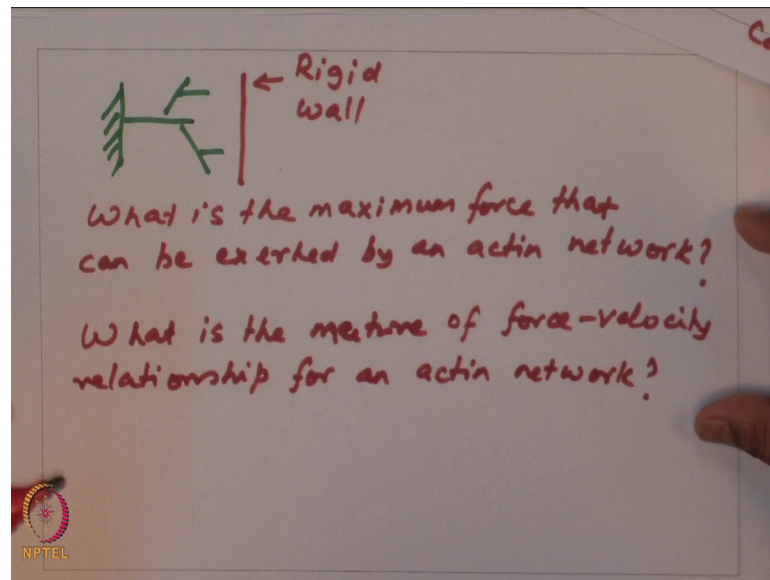 Co
← Rigid
wall
What is the maximum force that
can be exerted by an actin network?
What is the nature of force-velocity
relationship for an actin network?
NPTEL